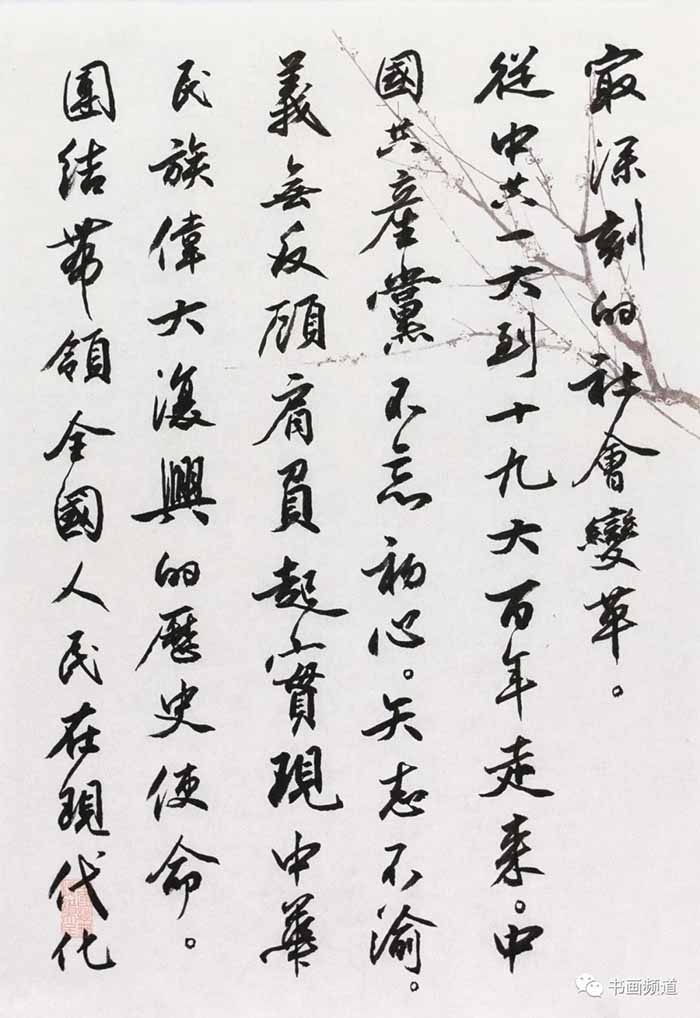 最深刻的社會變革。
從中共一大到十九大百年走来。中
國共産黨不忘初心。矢志不渝。
義無反顧肩負起實現中華
民族偉大復興的歷史使命。
團結帶領全國人民在現代化
书画频道